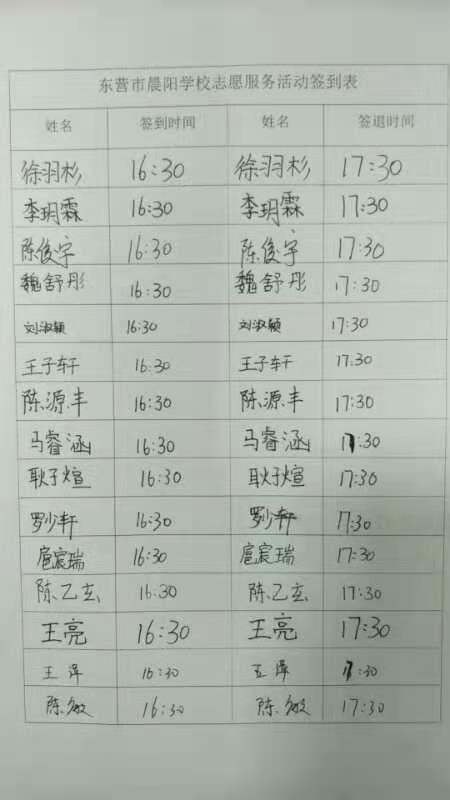 东营市晨阳学校志愿服务活动签到表
姓名 签到时间 姓名 签退时间
徐羽杉 16:30 徐羽杉 17:30
李玥霖 16:30 李玥霖 17:30
陈俊宇 16:30 陈俊宇 17:30
魏舒彤 16:30 魏舒彤 17:30
刘淑颖 16:30 刘淑颖 17:30
王子轩 16:30 王子轩 17:30
陈源丰 16:30 陈源丰 17:30
马睿涵 16:30 马睿涵 17:30
耿子煊 16:30 耿子煊 17:30
罗少轩 16:30 罗少轩 17:30
扈宸瑞 16:30 扈宸瑞 17:30
陈乙玄 16:30 陈乙玄 17:30
王亮 16:30 王亮 17:30
王萍 16:30 王萍 17:30
陈敏 16:30 陈敏 17:30